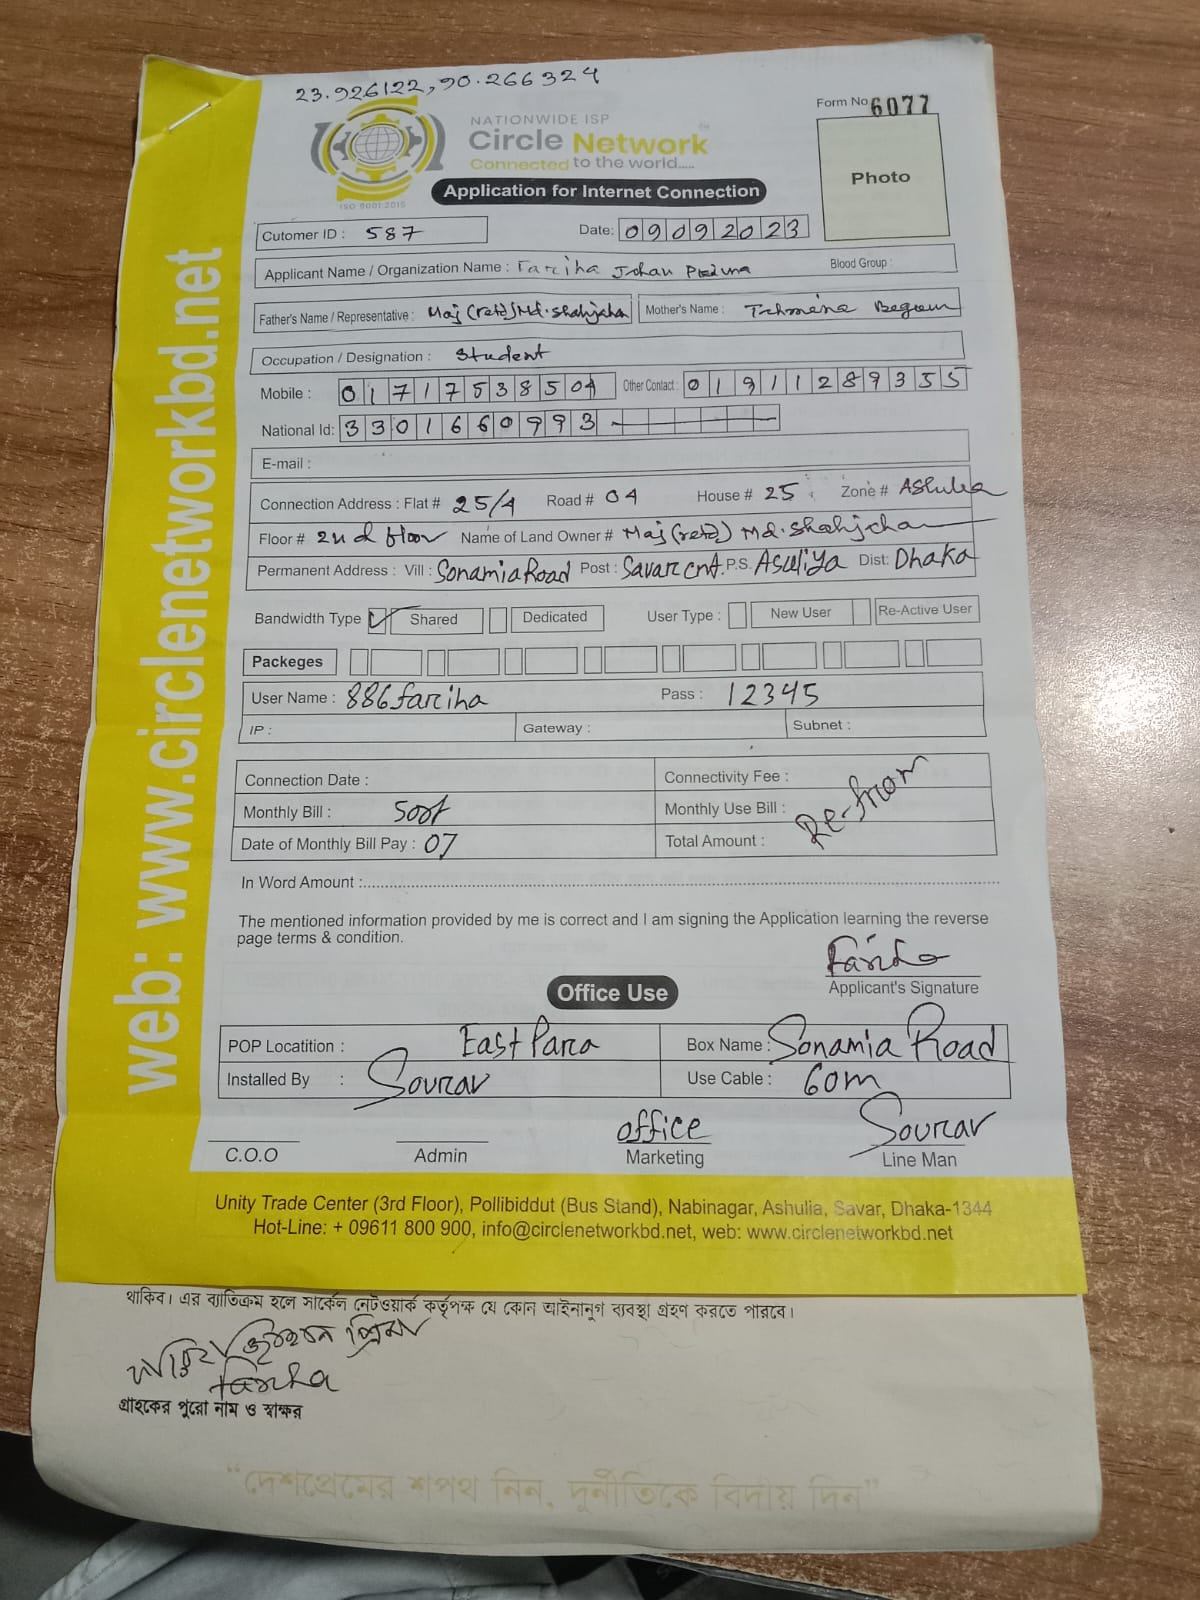 23.926122, 90.266324
Form No 6077
NATIONWIDE ISP
Circle Network
Connected to the world.....
ISO 9001:2015
Application for Internet Connection
Photo
Cutomer ID : 587
Date: 09092023
Applicant Name / Organization Name : Fariha Jahan
Blood Group :
Father's Name / Representative : Maj (retd) Md. Shahjahan
Mother's Name : Tahmina Begum
Occupation / Designation : Student
Mobile : 01717538504
Other Contact : 01911289355
National Id: 3301660993
E-mail :
Connection Address : Flat # 25/4 Road # 04 House # 25 Zone # Ashulia
Floor # 2nd floor Name of Land Owner # Maj (retd) Md. Shahjahan
Permanent Address : Vill : Sonamia Road Post : Savar cnt. P.S. Asuliya Dist: Dhaka
Bandwidth Type Shared Dedicated User Type : New User Re-Active User
Packeges
User Name : 886fariha Pass : 12345
IP : Gateway : Subnet :
Connection Date : Connectivity Fee :
Monthly Bill : 500 Monthly Use Bill :
Date of Monthly Bill Pay : 07 Total Amount :
Re-from
In Word Amount :
The mentioned information provided by me is correct and I am signing the Application learning the reverse
page terms & condition.
Fariha
Applicant's Signature
Office Use
POP Locatition : East Para Box Name : Sonamia Road
Installed By : Sourav Use Cable : 60m
office Sourav
C.O.O Admin Marketing Line Man
Unity Trade Center (3rd Floor), Pollibiddut (Bus Stand), Nabinagar, Ashulia, Savar, Dhaka-1344
Hot-Line: + 09611 800 900, info@circlenetworkbd.net, web: www.circlenetworkbd.net
web: www.circlenetworkbd.net
থাকিব। এর ব্যতিক্রম হলে সার্কেল নেটওয়ার্ক কর্তৃপক্ষ যে কোন আইনানুগ ব্যবস্থা গ্রহণ করতে পারবে।
ফারিহা জাহান প্রিমা
Fariha
গ্রাহকের পুরো নাম ও স্বাক্ষর
"দেশপ্রেমের শপথ নিন, দুর্নীতিকে বিদায় দিন"